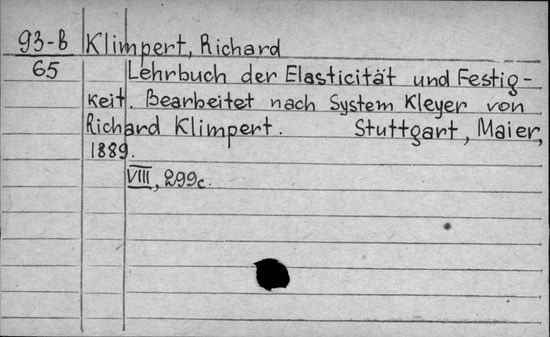 93-B Klimpert, Richard
65 Lehrbuch der Elasticität und Festig-
keit. Bearbeitet nach System Kleyer von
Richard Klimpert. Stuttgart, Maier,
1889.
VIII, 299c.